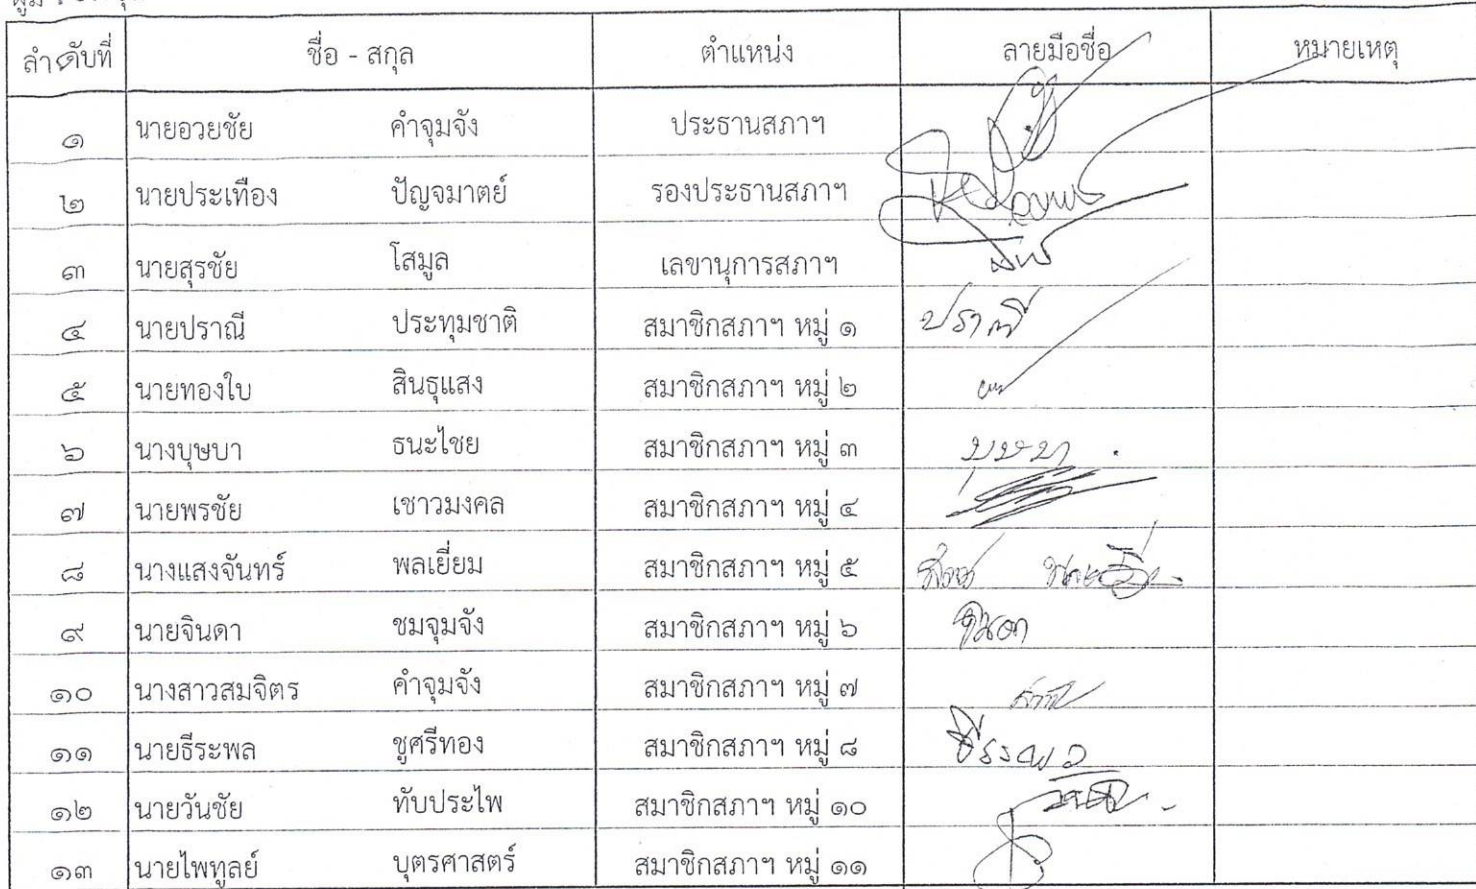 ลำดับที่ ชื่อ - สกุล ตำแหน่ง ลายมือชื่อ หมายเหตุ
๑ นายอวยชัย คำจุมจัง ประธานสภาฯ
๒ นายประเทือง ปัญจมาตย์ รองประธานสภาฯ
๓ นายสุรชัย โสมูล เลขานุการสภาฯ
๔ นายปราณี ประทุมชาติ สมาชิกสภาฯ หมู่ ๑ ปราณี
๕ นายทองใบ สินธุแสง สมาชิกสภาฯ หมู่ ๒
๖ นางบุษบา ธนะไชย สมาชิกสภาฯ หมู่ ๓ บุษบา
๗ นายพรชัย เชาวมงคล สมาชิกสภาฯ หมู่ ๔
๘ นางแสงจันทร์ พลเยี่ยม สมาชิกสภาฯ หมู่ ๕
๙ นายจินดา ชมจุมจัง สมาชิกสภาฯ หมู่ ๖ จินดา
๑๐ นางสาวสมจิตร คำจุมจัง สมาชิกสภาฯ หมู่ ๗
๑๑ นายธีระพล ชูศรีทอง สมาชิกสภาฯ หมู่ ๘ ธีระพล
๑๒ นายวันชัย ทับประไพ สมาชิกสภาฯ หมู่ ๑๐
๑๓ นายไพทูลย์ บุตรศาสตร์ สมาชิกสภาฯ หมู่ ๑๑